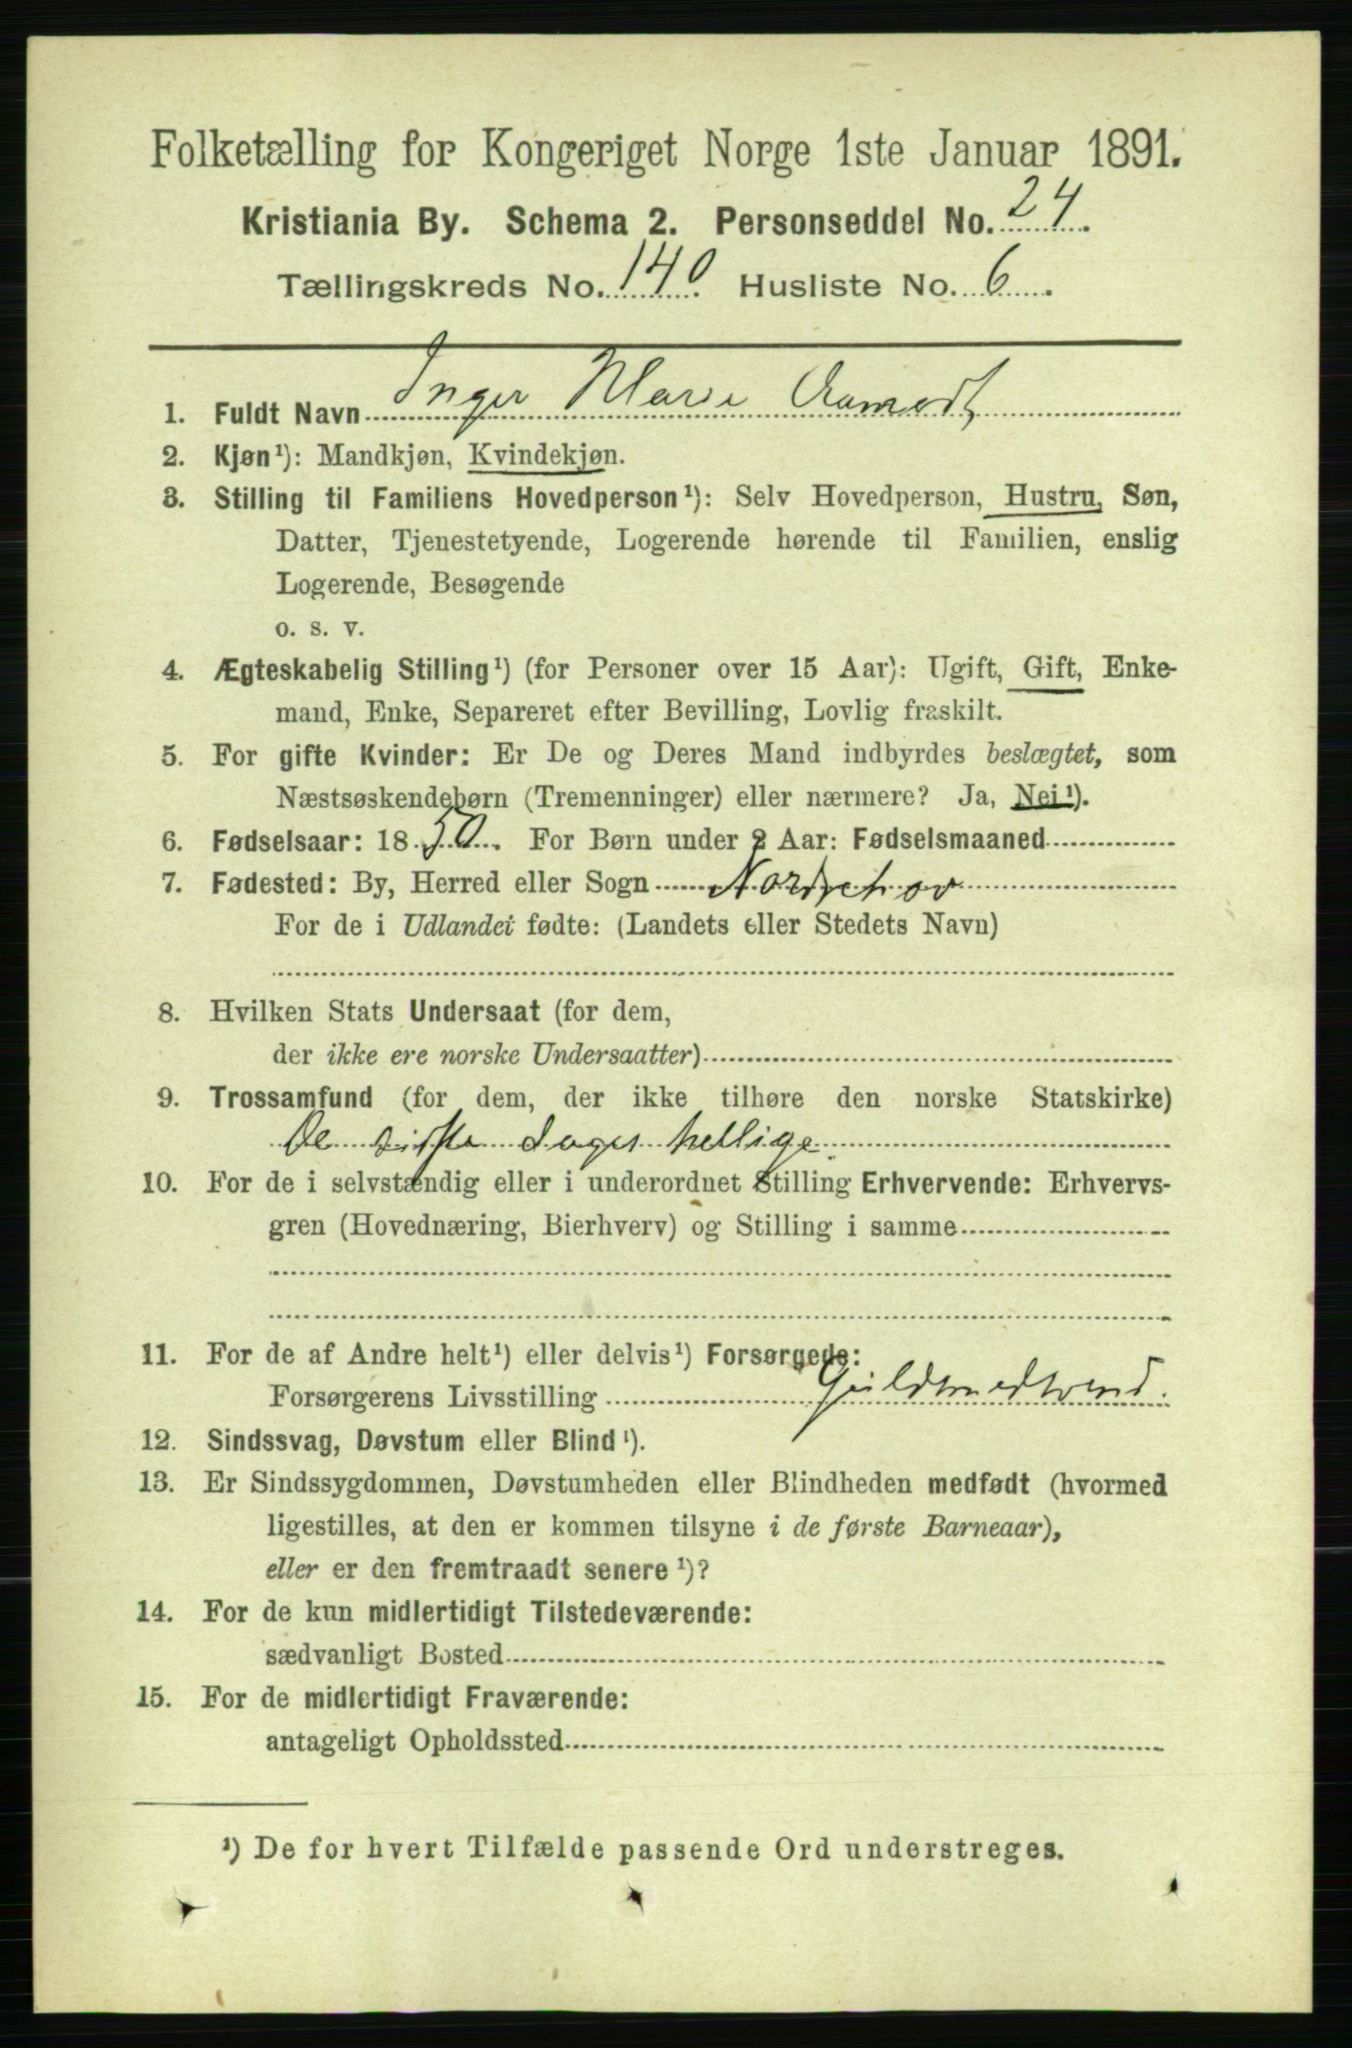 Folketælling for Kongeriget Norge 1ste Januar 1891.
Kristiania By. Schema 2. Personseddel No. 24.
Tællingskreds No. 140 Husliste No. 6.
1. Fuldt Navn Inger Marie Aamodt
2. Kjøn¹): Mandkjøn, Kvindekjøn.
3. Stilling til Familiens Hovedperson¹): Selv Hovedperson, Hustru, Søn,
Datter, Tjenestetyende, Logerende hørende til Familien, enslig
Logerende, Besøgende
o. s. v.
4. Ægteskabelig Stilling¹) (for Personer over 15 Aar): Ugift, Gift, Enke-
mand, Enke, Separeret efter Bevilling, Lovlig fraskilt.
5. For gifte Kvinder: Er De og Deres Mand indbyrdes beslægtet, som
Næstsøskendebørn (Tremenninger) eller nærmere? Ja, Nei¹).
6. Fødselsaar: 1850. For Børn under 2 Aar: Fødselsmaaned
7. Fødested: By, Herred eller Sogn Norderhov
For de i Udlandet fødte: (Landets eller Stedets Navn)
8. Hvilken Stats Undersaat (for dem,
der ikke ere norske Undersaatter)
9. Trossamfund (for dem, der ikke tilhøre den norske Statskirke)
De sidste dages hellige.
10. For de i selvstændig eller i underordnet Stilling Erhvervende: Erhvervs-
gren (Hovednæring, Bierhverv) og Stilling i samme
11. For de af Andre helt¹) eller delvis¹) Forsørgede:
Forsørgerens Livsstilling Guldsmedsvend.
12. Sindssvag, Døvstum eller Blind¹).
13. Er Sindssygdommen, Døvstumheden eller Blindheden medfødt (hvormed
ligestilles, at den er kommen tilsyne i de første Barneaar),
eller er den fremtraadt senere¹)?
14. For de kun midlertidigt Tilstedeværende:
sædvanligt Bosted
15. For de midlertidigt Fraværende:
antageligt Opholdssted
¹) De for hvert Tilfælde passende Ord understreges.